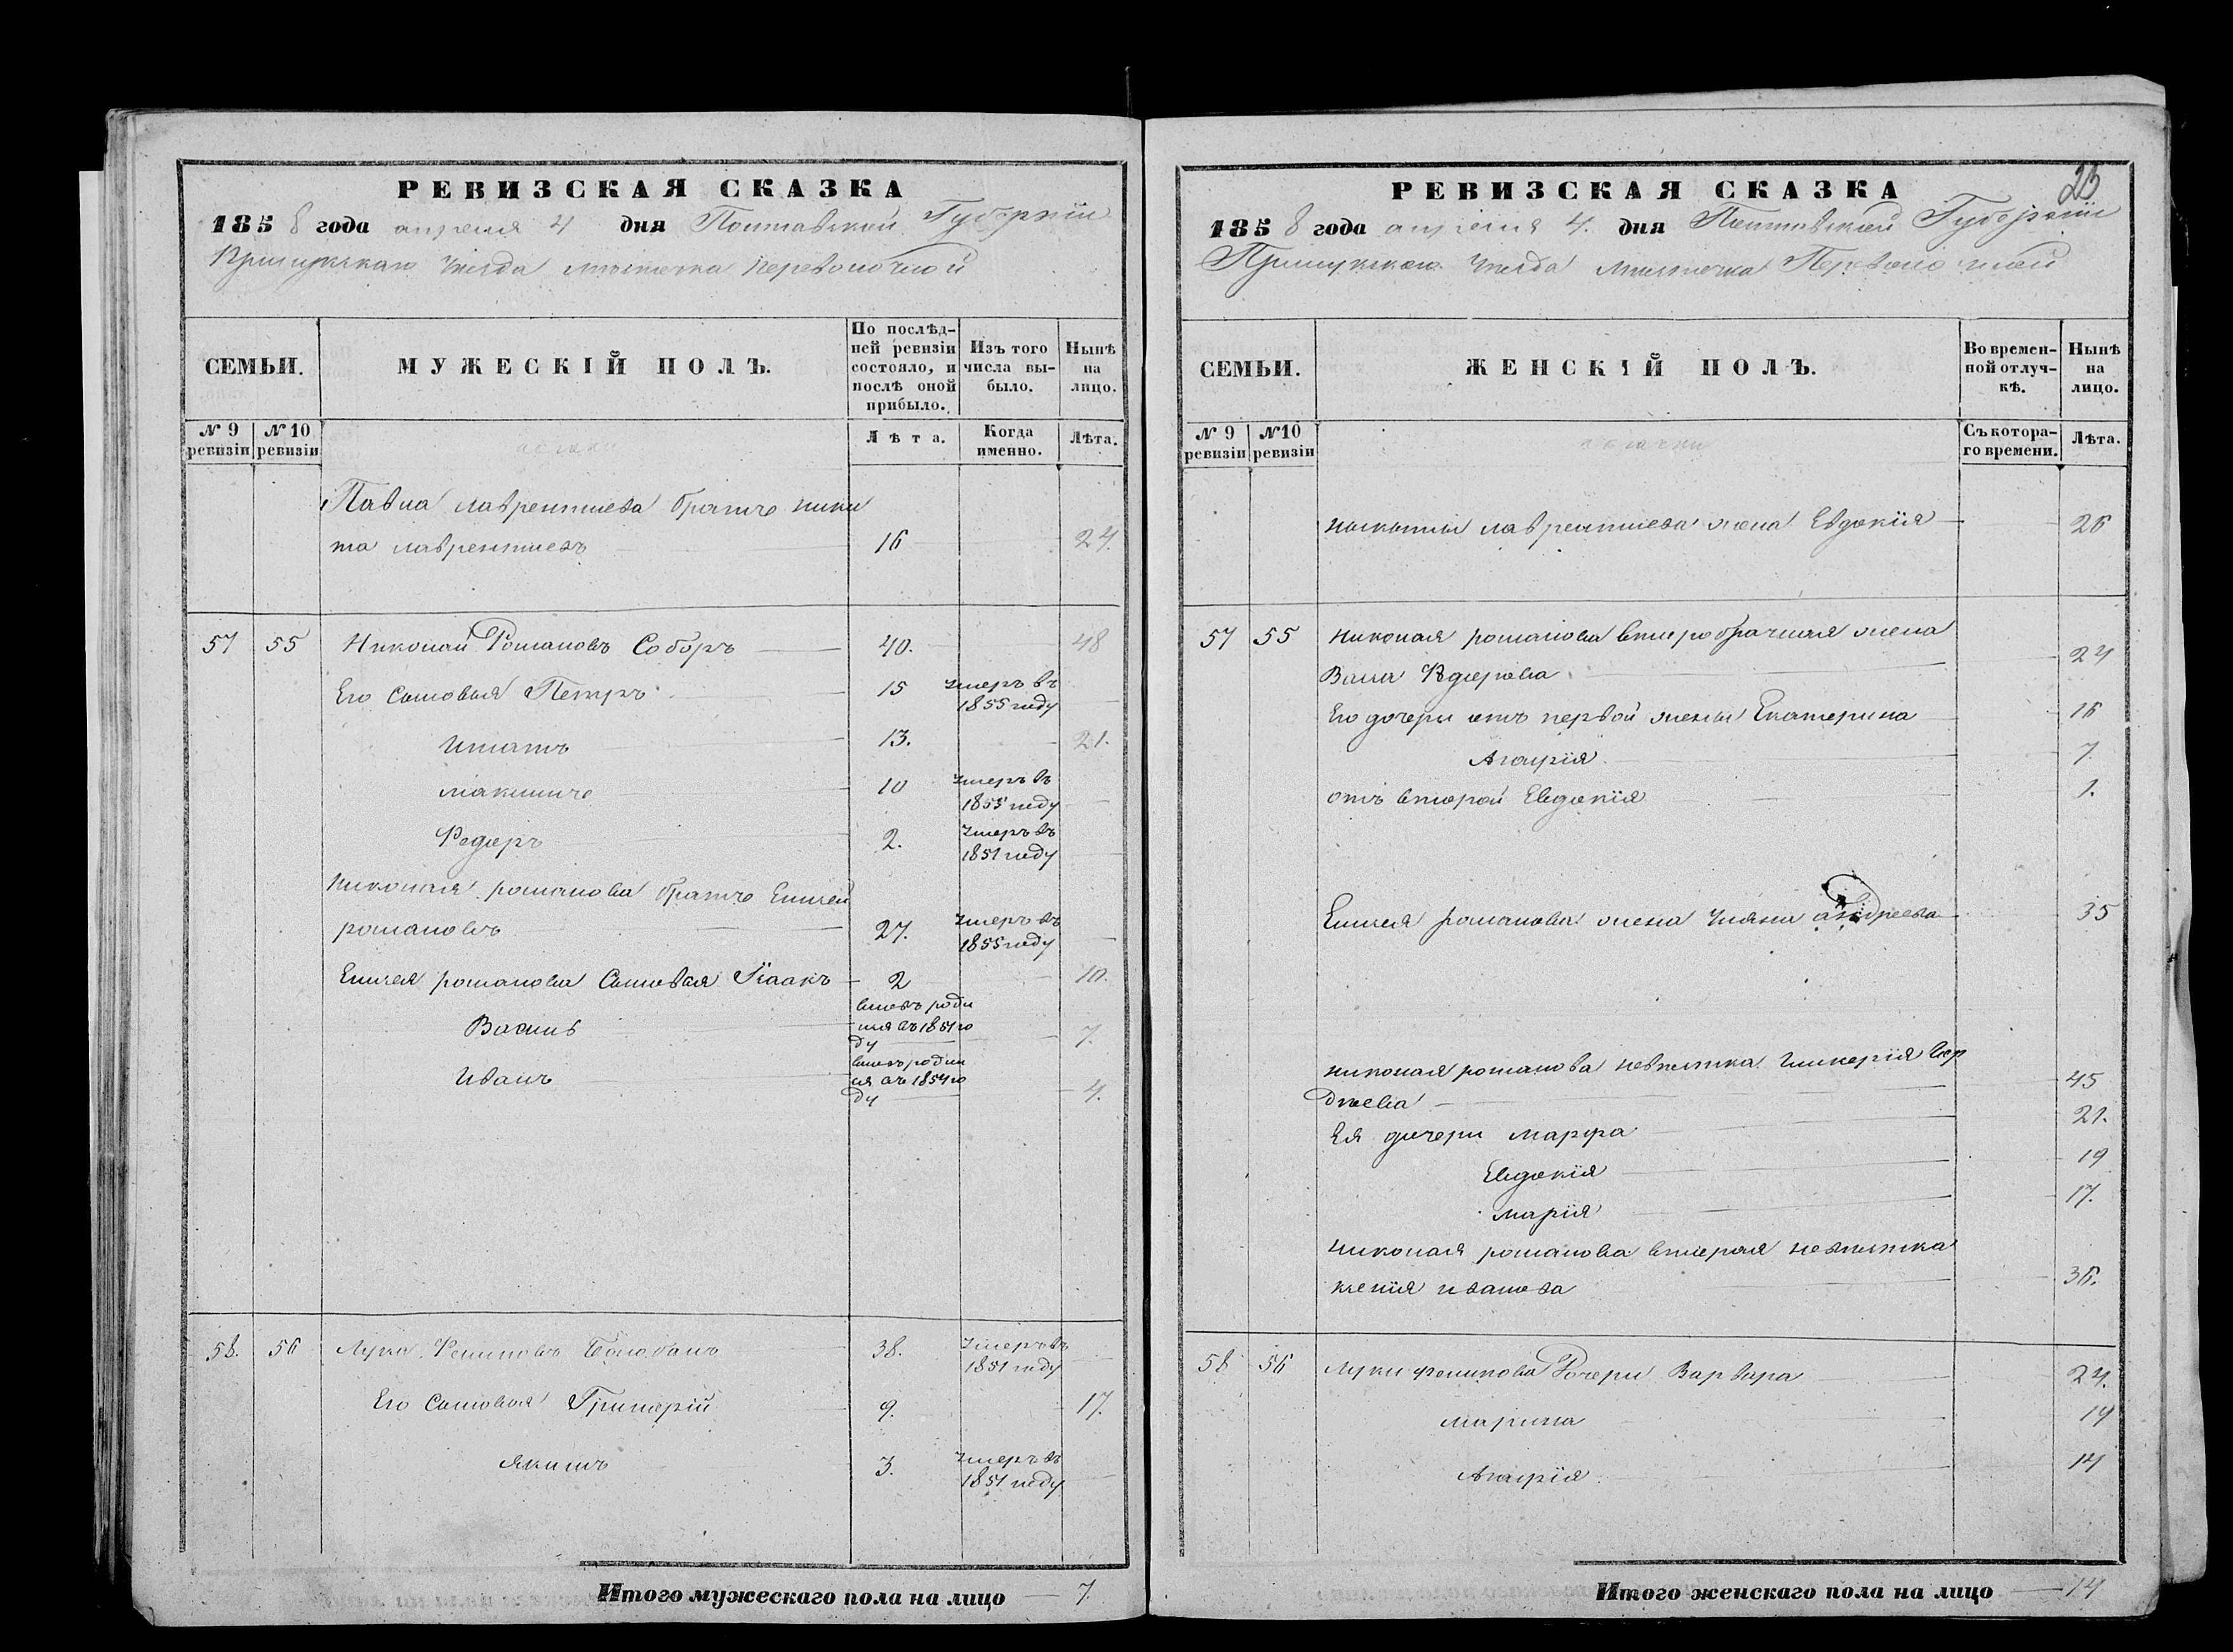 РЕВИЗСКАЯ СКАЗКА
1858 года апреля 4 дня Полтавской Губернии
Прилукскаго уезда местечка Переволочной
СЕМЬИ.
МУЖЕСКІЙ ПОЛЪ.
По послѣд-
ней ревизіи
состояло, и
послѣ оной
прибыло.
Изъ того
числа вы-
было.
Нынѣ
на
лицо.
№ 9
ревизіи
№ 10
ревизіи
Лѣта.
Когда
именно.
Лѣта.
Павла лаврентиева братъ ники
та лаврентиевъ 16 24.
57 55 Николай Романовъ Соборъ 40. 48
Его Сыновья Петръ 15 умеръ въ
1855 году
Игнатъ 13. 21.
Максимъ 10 умеръ въ
1855 году
Федоръ 2. умеръ въ
1851 году
николая романова братъ Елисей
романовъ 27. умеръ въ
1855 году
Елисея романова Сыновья Ісаакъ 2 10.
вновь роди
лся въ 1851 го
ду
Василь 7.
вновь родил
ся въ 1854 го
ду
Иванъ 4.
58. 56 Лука 38. умеръ въ
1851 году
Его Сыновья Григорій 9. 17.
якимъ 3. умеръ въ
1851 году
Итого мужескаго пола на лицо 7.
23
РЕВИЗСКАЯ СКАЗКА
1858 года апреля 4. дня Полтавской Губернии
Прилукскаго уезда местечка Переволочной
СЕМЬИ.
ЖЕНСКІЙ ПОЛЪ.
Во времен-
ной отлуч-
кѣ.
Нынѣ
на
лицо.
№ 9
ревизіи
№ 10
ревизіи
Съ котора-
го времени.
Лѣта.
никиты лаврентиева жена Евдокія 26
57 55 николая романова второбрачная жена
Федорова 24
Его дочери отъ первой жены Екатерина 16
Агафія 7.
отъ второй Евдокія 1.
Елисея романова жена Уляна андреева 35
николая романова невестка Гликерія Гор
дѣева 45
Ея дочери марфа 21.
Евдокія 19
марія 17.
николая романова вторая невестка
ксенія иванова 36.
58 56 луки филипова Дочери Варвара 24.
марина 19
Агафія 14
Итого женскаго пола на лицо 14